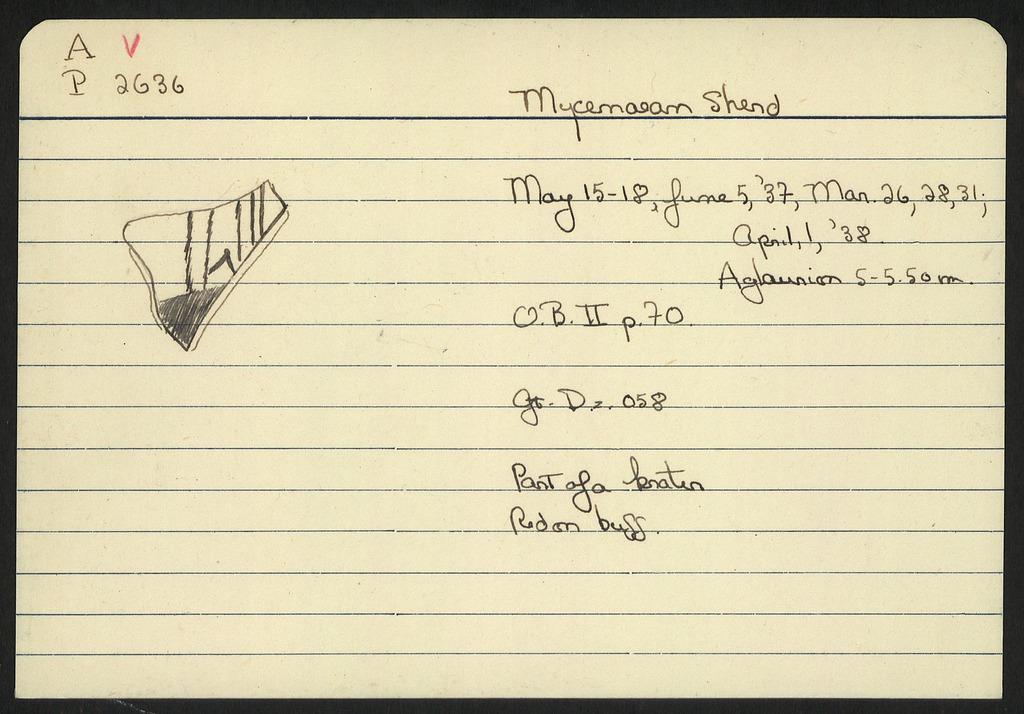 A V
P 2636
Mycenaean Sherd
May 15-18, June 5, '37, Mar. 26, 28, 31;
April, 1, '38.
Aglaurion 5-5.50 m.
O.B. II p. 70.
Gr. D. = .058
Part of a krater
Red on buff.